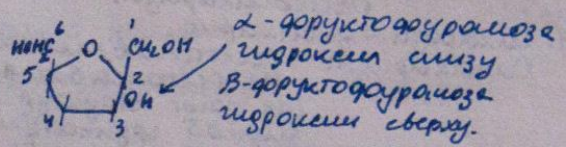 HOH₂C⁶ O ¹CH₂OH
5 2
OH
4 3
α-фруктофураноза
гидроксил снизу
β-фруктофураноза
гидроксил сверху.